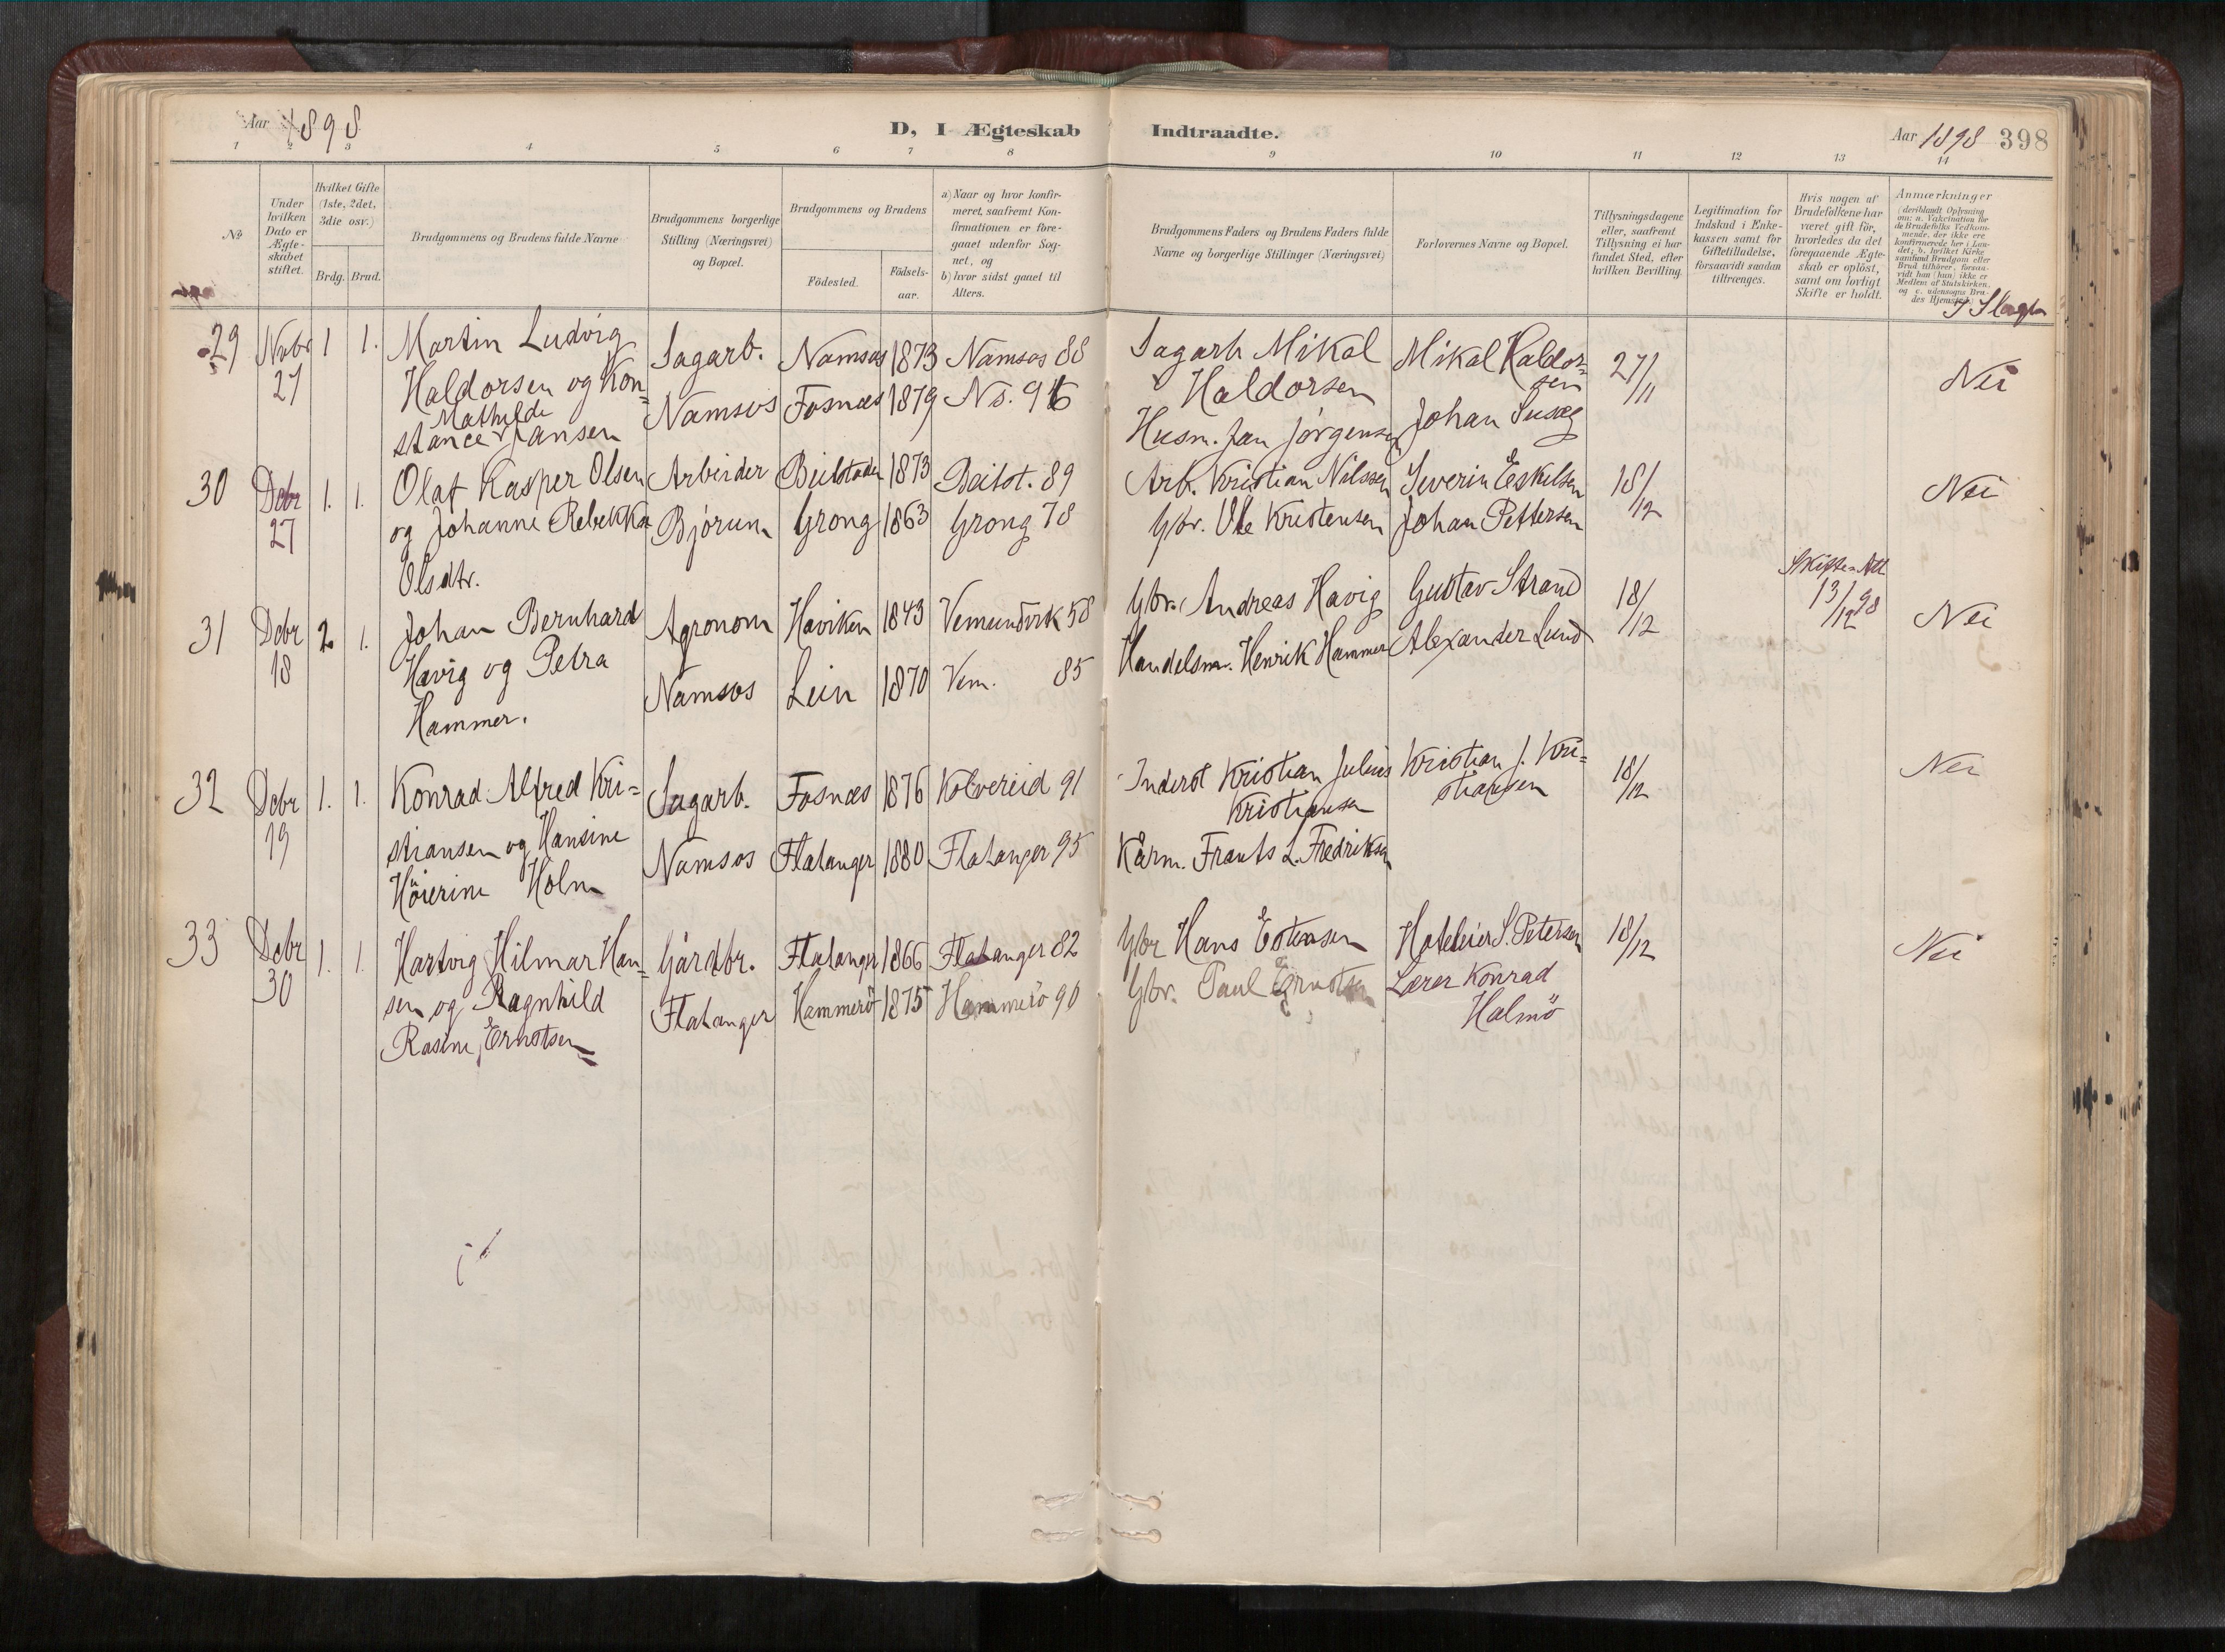 Aar 1898
D, I Ægteskab
Indtraadte.
Aar 1898 398
1 2 3 4 5 6 7 8 9 10 11 12 13 14
No
Under hvilken Dato er Ægte-skabet stiftet.
Hvilket Gifte (1ste, 2det, 3die osv.)
Brdg. Brud.
Brudgommens og Brudens fulde Navne
Brudgommens borgerlige Stilling (Næringsvei) og Bopæl.
Brudgommens og Brudens
Födested.
Födsels-aar.
a) Naar og hvor konfir-meret, saafremt Kon-firmationen er fore-gaaet udenfor Sog-net, og
b) hvor sidst gaaet til Alters.
Brudgommens Faders og Brudens Faders fulde Navne og borgerlige Stillinger (Næringsvei)
Forlovernes Navne og Bopæl.
Tillysningsdagene eller, saafremt Tillysning ei har fundet Sted, efter hvilken Bevilling
Legitimation for Indskud i Enke-kassen samt for Giftetilladelse, forsaavidt saadan tiltrænges.
Hvis nogen af Brudefolkene har været gift för, hvorledes da det foregaaende Ægte-skab er oplöst, samt om lovligt Skifte er holdt.
Anmærkninger
(deriblandt Oplysning om: a. Vakcination for de Brudefolks Vedkom-mende, der ikke ere konfirmerede her i Lan-det; b. hvilket Kirke-samfund Brudgom eller Brud tilhörer, forsaa-vidt han (hun) ikke er Medlem af Statskirken, og c. udensogns Bru-des Hjemsted.)
29 Novbr 1 1. Martin Ludvig Sagarb. Namsos 1873 Namsos 88 Sagarb Mikal Mikal Haldor= 27/11 Nei
27 Haldorsen og Kon= Namsos Fosnæs 1879 Ns. 96 Haldorsen sen
Mathilde
stance Jansen Husm. Jan Jørgensen Johan
30 Dcbr 1. 1. Olaf Kasper Olsen Arbeider Beitstaden 1873 Beitst. 89 Arb. Kristian Nilssen Severin Eskelsen 18/12 Nei
27 og Johanne Rebekka Bjørum Grong 1863 Grong 78 Gbr. Ole Kristensen Johan Pettersen
Olsdtr.
31 Dcbr 2. 1. Johan Bernhard Agronom Haviken 1843 Vemundvik 58 Gbr. Andreas Havig Gustav Strand 18/12 Skifte Att 13/12 98 Nei
18 Havig og Petra Namsos Lein 1870 Vem. 85 Handelsm. Henrik Hammer Alexander Lund
Hammer.
32 Dcbr 1. 1. Konrad Alfred Kri= Sagarb. Fosnæs 1876 Kolvereid 91 Inderst Kristian Julius Kristian J. Kri= 18/12 Nei
19 stiansen og Hansine Namsos Flatanger 1880 Flatanger 95 Kristiansen stiansen
Höierine Holm Kårm. Frants L. Fredriksen
33 Dcbr 1. 1. Hartvig Hilmar Han= Gårdbr. Flatanger 1866 Flatanger 82 Gbr Hans Estensen Hoteleier S. Petersen 18/12 Nei
30 sen og Ragnhild Flatanger Hammerö 1875 Hammerö 90 Gbr. Paul Erntsen Lærer Konrad
Rasine Erntsen Halmö